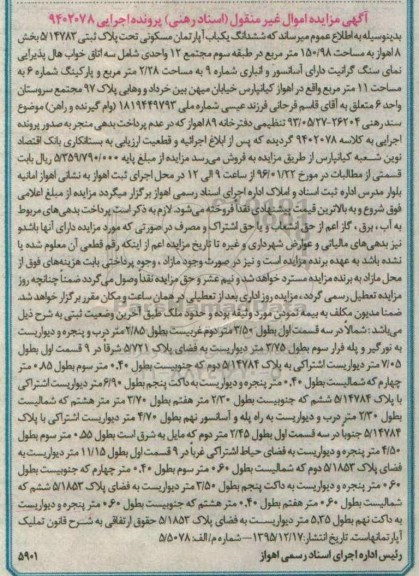 آگهی مزایده اموال غیر منقول (اسناد رهنی) پرونده اجرایی ۹۴۰۲۰۷۸
بدینوسیله به اطلاع عموم میرساند که ششدانگ یکباب آپارتمان مسکونی تحت پلاک ثبتی ۵/۱۱۴۷۸۷ بخش
۸ اهواز به مساحت ۱۵۰/۹۸ متر مربع در طبقه سوم مجتمع ۱۲ واحدی شامل سه اتاق خواب هال پذیرایی
نمای سنگ گرانیت دارای آسانسور و انباری شماره ۹ به مساحت ۲/۲۸ متر مربع و پارکینگ شماره ۶ به
مساحت ۱۱ متر مربع واقع در اهواز کیانپارس خیابان میهن بین خرداد و وهابی پلاک ۹۷ مجتمع سروستان
واحد ۶ متعلق به آقای قاسم فرحانی فرزند عیسی شماره ملی ۱۸۱۹۴۴۹۷۹۳ (وام گیرنده و راهن) موضوع
سند رهنی ۲۶۲۰۴-۹۳/۰۵/۲۷ تنظیمی دفترخانه ۸۹ اهواز که در عدم پرداخت بدهی منجر به صدور پرونده
اجرایی به کلاسه ۹۴۰۲۰۷۸ گردیده که پس از ابلاغ اجرائیه و قطعیت ارزیابی به بستانکاری بانک اقتصاد
نوین شعبه کیانپارس از طریق مزایده به فروش می‌رسد مزایده از مبلغ پایه ۵/۳۵۹/۷۹۰/۰۰۰ ریال بابت
قسمتی از مطالبات در مورخ ۹۶/۰۱/۲۲ از ساعت ۹ الی ۱۲ در محل اجرای ثبت اهواز به نشانی اهواز امانیه
بلوار مدرس اداره ثبت اسناد و املاک اداره اجرای اسناد رسمی اهواز برگزار میگردد مزایده از مبلغ اعلامی
فوق شروع و به بالاترین قیمت پیشنهادی نقداً فروخته می‌شود. لازم به ذکر است پرداخت بدهی‌های مربوط
به آب، برق، گاز اعم از حق انشعاب و یا حق اشتراک و مصرف در صورتی که مورد مزایده دارای آنها باشد و
نیز بدهی‌های مالیاتی و عوارض شهرداری و غیره تا تاریخ مزایده اعم از اینکه رقم قطعی آن معلوم شده یا
نشده باشد به عهده برنده مزایده است و نیز در صورت وجود مازاد، وجوه پرداختی بابت هزینه‌های فوق از
محل مازاد به برنده مزایده مسترد خواهد شد و نیم عشر و حق مزایده نقداً وصول می‌گردد ضمناً چنانچه روز
مزایده تعطیل رسمی گردد، مزایده روز اداری بعد از تعطیلی در همان ساعت و مکان مقرر برگزار خواهد شد.
ضمنا مدیون مکلف به بیمه نمودن مورد وثیقه بوده و حدود ملک طبق آخرین وضعیت ثبتی به شرح ذیل
می‌باشد: شمالاً در سه قسمت اول بطول ۳/۵۰ متر دوم غربیست بطول ۲/۸۵ متر درب و پنجره و دیواریست
به نورگیر و پله فرار سوم بطول ۳/۷۵ متر دیواریست به فضای پلاک ۵/۷۲۱ شرقاً در ۹ قسمت اول بطول
۷/۰۵ متر دیواریست اشتراکی به پلاک ۵/۱۱۴۷۸۴ دوم که جنوبیست بطول ۰.۴۰ متر سوم بطول ۰.۸۵ متر
چهارم که شمالیست بطول ۰.۴۰ متر پنجره و دیواریست به داکت پنجم بطول ۶/۹۰ متر دیواریست اشتراکی
با پلاک ۵/۱۱۴۷۸۴ ششم که جنوبیست بطول ۲/۳۰ متر هفتم بطول ۳/۷۰ متر هشتم که شمالیست
بطول ۲/۳۰ متر درب و دیواریست به راه پله و آسانسور نهم بطول ۴/۷۰ متر دیواریست اشتراکی با پلاک
۵/۱۱۴۷۸۴ جنوباً در سه قسمت اول بطول ۲/۴۵ متر دوم که مایل به شرق است بطول ۰.۵۵ متر سوم بطول
۴/۵۰ متر پنجره و دیواریست به فضای حیاط اشتراکی غرباً در ۹ قسمت اول بطول ۱۱/۱۵ متر دیواریست به
فضای پلاک ۵/۱۸۵۳ دوم که شمالیست بطول ۰.۶۰ متر سوم بطول ۰.۴۰ متر چهارم که جنوبیست بطول
۰.۶۰ متر پنجره و دیواریست به داکت پنجم بطول ۲/۵۰ متر دیواریست به فضای پلاک ۵/۱۸۵۳ ششم که
شمالیست بطول ۰.۶۰ متر هفتم بطول ۰.۴۰ متر هشتم که جنوبیست بطول ۰.۶۰ متر پنجره و دیواریست
به داکت نهم بطول ۵.۲۵ متر دیواریست به فضای پلاک ۵/۱۸۵۳ حقوق ارتفاقی به شرح قانون تملیک
آپارتمانهاست. تاریخ انتشار: ۱۳۹۵/۱۲/۱۷ – شماره م/الف: ۵/۵۰۷۸
رئیس اداره اجرای اسناد رسمی اهواز ۵۹۰۱